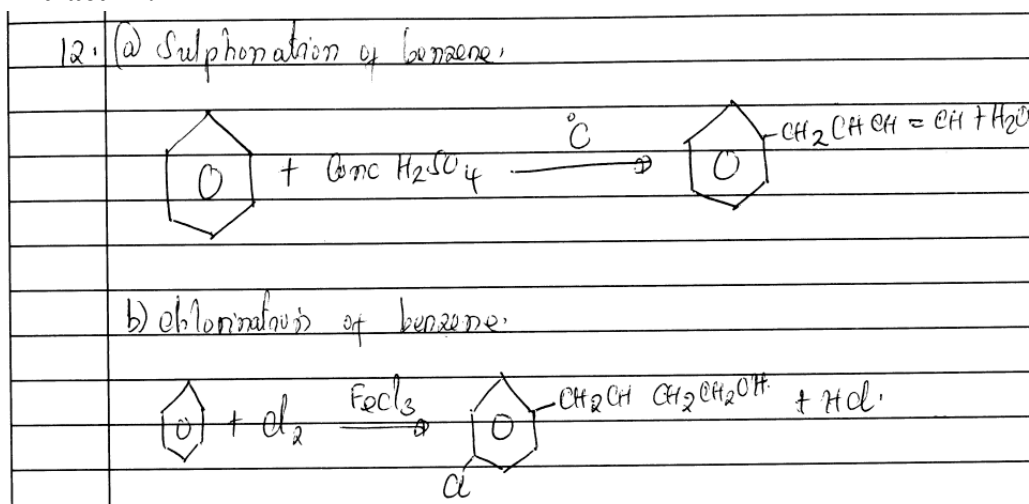 12. (a) Sulphonation of benzene.
+ Conc H₂SO₄ °C → -CH₂CHCH = CH + H₂O
b) chlorination of benzene.
+ Cl₂ FeCl₃ → -CH₂CH CH₂CH₂OH. + HCl.
Cl